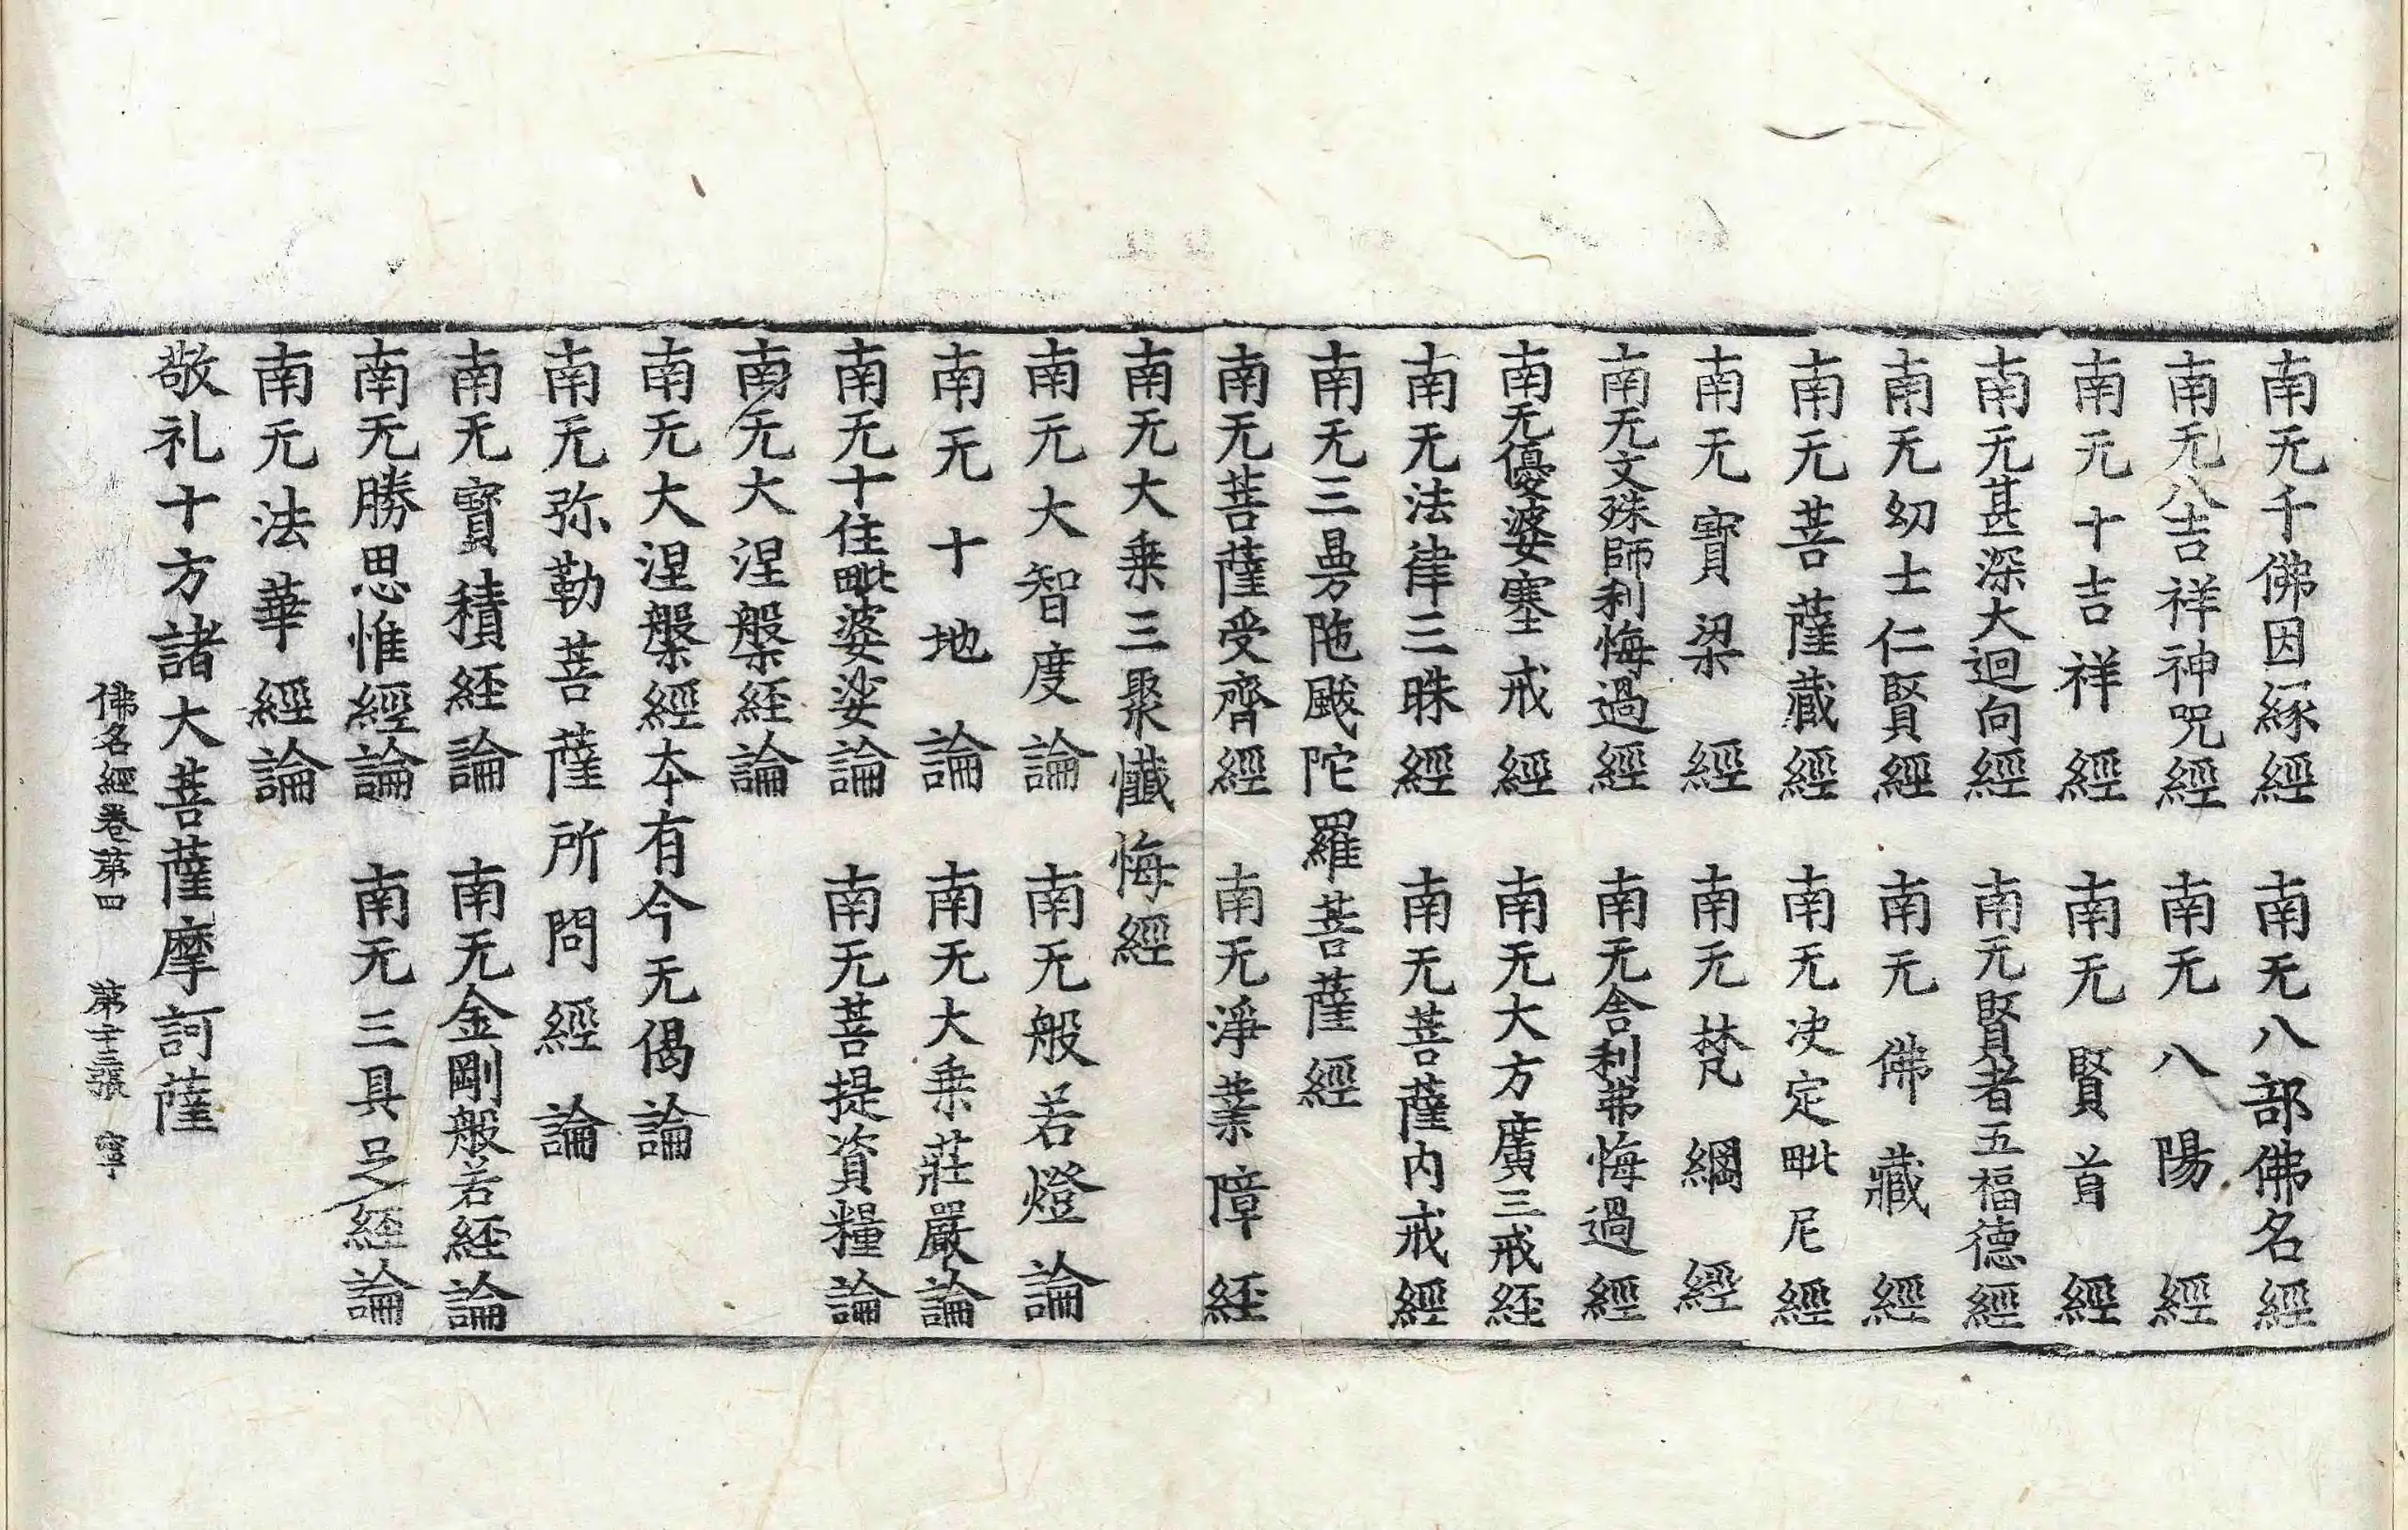 南无千佛因縁經　南无八部佛名經
南无八吉祥神呪經　南无八陽經
南无十吉祥經　南无賢首經
南无甚深大迴向經　南无賢者五福德經
南无幻士仁賢經　南无佛藏經
南无菩薩藏經　南无决定毗尼經
南无寳梁經　南无梵網經
南无文殊師利悔過經　南无舎利弗悔過經
南无優婆塞戒經　南无大方廣三戒経
南无法律三昧經　南无菩薩内戒經
南无三曼陁颰陀羅菩薩經
南无菩薩受齊經　南无淨業障経
南无大乗三聚懺悔經
南无大智度論　南无般若燈論
南无十地論　南无大乗莊嚴論
南无十住毗婆娑論　南无菩提資糧論
南无大涅槃経論
南无大涅槃經本有今无偈論
南无弥勒菩薩所問經論
南无寳積経論　南无金剛般若経論
南无勝思惟經論　南无三具足経論
南无法華經論
敬礼十方諸大菩薩摩訶薩
佛名經卷第四　第十三張　寧